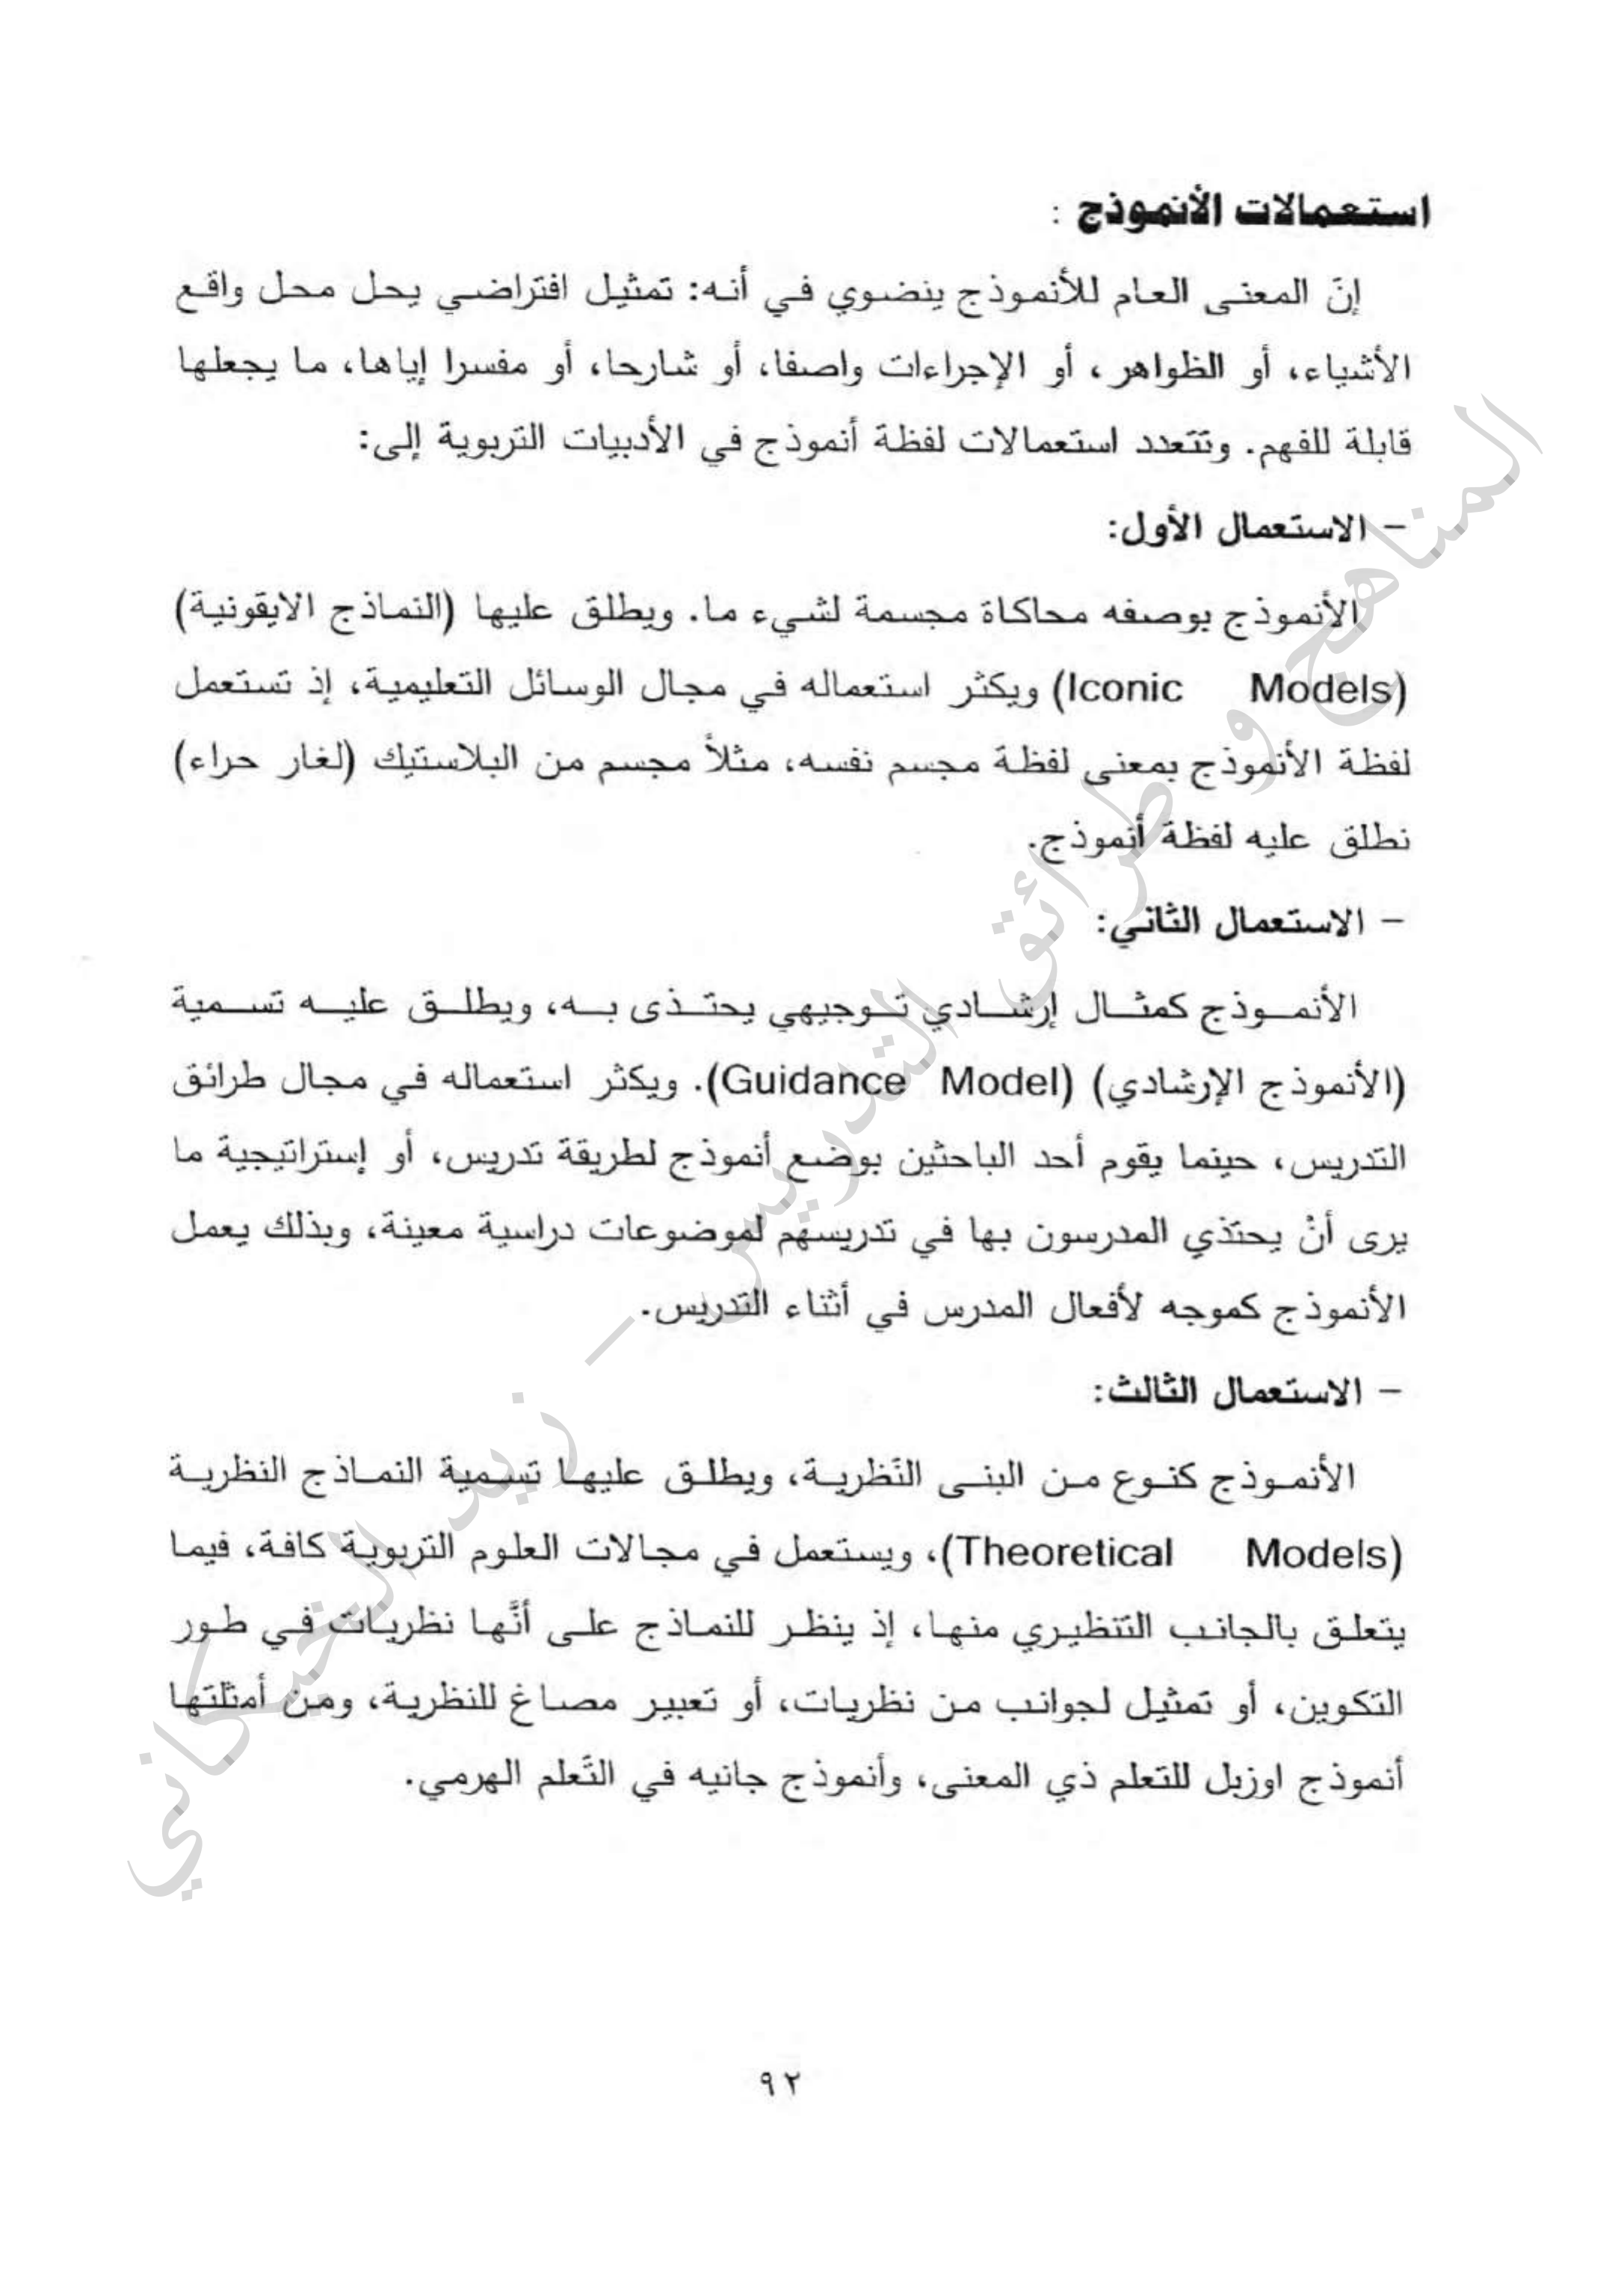 استعمالات الأنموذج :
إنّ المعنى العام للأنموذج ينضوي في أنه: تمثيل افتراضي يحل محل واقع
الأشياء، أو الظواهر، أو الإجراءات واصفا، أو شارحا، أو مفسرا إياها، ما يجعلها
قابلة للفهم. وتتعدد استعمالات لفظة أنموذج في الأدبيات التربوية إلى:
– الاستعمال الأول:
الأنموذج بوصفه محاكاة مجسمة لشيء ما. ويطلق عليها (النماذج الايقونية)
(Iconic Models) ويكثر استعماله في مجال الوسائل التعليمية، إذ تستعمل
لفظة الأنموذج بمعنى لفظة مجسم نفسه، مثلاً مجسم من البلاستيك (لغار حراء)
نطلق عليه لفظة أنموذج.
– الاستعمال الثاني:
الأنموذج كمثال إرشادي توجيهي يحتذى به، ويطلق عليه تسمية
(الأنموذج الإرشادي) (Guidance Model). ويكثر استعماله في مجال طرائق
التدريس، حينما يقوم أحد الباحثين بوضع أنموذج لطريقة تدريس، أو إستراتيجية ما
يرى أنْ يحتذي المدرسون بها في تدريسهم لموضوعات دراسية معينة، وبذلك يعمل
الأنموذج كموجه لأفعال المدرس في أثناء التدريس.
– الاستعمال الثالث:
الأنموذج كنوع من البنى النّظرية، ويطلق عليها تسمية النماذج النظرية
(Theoretical Models)، ويستعمل في مجالات العلوم التربوية كافة، فيما
يتعلق بالجانب التنظيري منها، إذ ينظر للنماذج على أنَّها نظريات في طور
التكوين، أو تمثيل لجوانب من نظريات، أو تعبير مصاغ للنظرية، ومن أمثلتها
أنموذج اوزبل للتعلم ذي المعنى، وأنموذج جانيه في التّعلم الهرمي.
٩٢
المناهج وطرائق التدريس – زيد الخيكاني